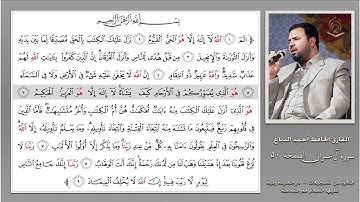 بِسْمِ ٱللَّهِ ٱلرَّحْمَٰنِ ٱلرَّحِيمِ
الٓمٓ ١ ٱللَّهُ لَآ إِلَٰهَ إِلَّا هُوَ ٱلْحَىُّ ٱلْقَيُّومُ ٢ نَزَّلَ عَلَيْكَ ٱلْكِتَٰبَ بِٱلْحَقِّ مُصَدِّقًا لِّمَا بَيْنَ يَدَيْهِ
وَأَنزَلَ ٱلتَّوْرَىٰةَ وَٱلْإِنجِيلَ ٣ مِن قَبْلُ هُدًى لِّلنَّاسِ وَأَنزَلَ ٱلْفُرْقَانَ إِنَّ ٱلَّذِينَ كَفَرُوا۟ بِـَٔايَٰتِ ٱللَّهِ لَهُمْ
عَذَابٌ شَدِيدٌ وَٱللَّهُ عَزِيزٌ ذُو ٱنتِقَامٍ ٤ إِنَّ ٱللَّهَ لَا يَخْفَىٰ عَلَيْهِ شَىْءٌ فِى ٱلْأَرْضِ وَلَا فِى ٱلسَّمَآءِ
٥ هُوَ ٱلَّذِى يُصَوِّرُكُمْ فِى ٱلْأَرْحَامِ كَيْفَ يَشَآءُ لَآ إِلَٰهَ إِلَّا هُوَ ٱلْعَزِيزُ ٱلْحَكِيمُ ٦
هُوَ ٱلَّذِىٓ أَنزَلَ عَلَيْكَ ٱلْكِتَٰبَ مِنْهُ ءَايَٰتٌ مُّحْكَمَٰتٌ هُنَّ أُمُّ ٱلْكِتَٰبِ وَأُخَرُ مُتَشَٰبِهَٰتٌ فَأَمَّا ٱلَّذِينَ
فِى قُلُوبِهِمْ زَيْغٌ فَيَتَّبِعُونَ مَا تَشَٰبَهَ مِنْهُ ٱبْتِغَآءَ ٱلْفِتْنَةِ وَٱبْتِغَآءَ تَأْوِيلِهِ وَمَا يَعْلَمُ تَأْوِيلَهُ إِلَّا ٱللَّهُ
وَٱلرَّٰسِخُونَ فِى ٱلْعِلْمِ يَقُولُونَ ءَامَنَّا بِهِ كُلٌّ مِّنْ عِندِ رَبِّنَا وَمَا يَذَّكَّرُ إِلَّآ أُو۟لُوا۟ ٱلْأَلْبَٰبِ ٧ رَبَّنَا لَا
تُزِغْ قُلُوبَنَا بَعْدَ إِذْ هَدَيْتَنَا وَهَبْ لَنَا مِن لَّدُنكَ رَحْمَةً إِنَّكَ أَنتَ ٱلْوَهَّابُ ٨ رَبَّنَآ إِنَّكَ جَامِعُ ٱلنَّاسِ
لِيَوْمٍ لَّا رَيْبَ فِيهِ إِنَّ ٱللَّهَ لَا يُخْلِفُ ٱلْمِيعَادَ ٩
القارئ الحافظ احمد الدباغ
سورة آل عمران الصفحة ٥٠